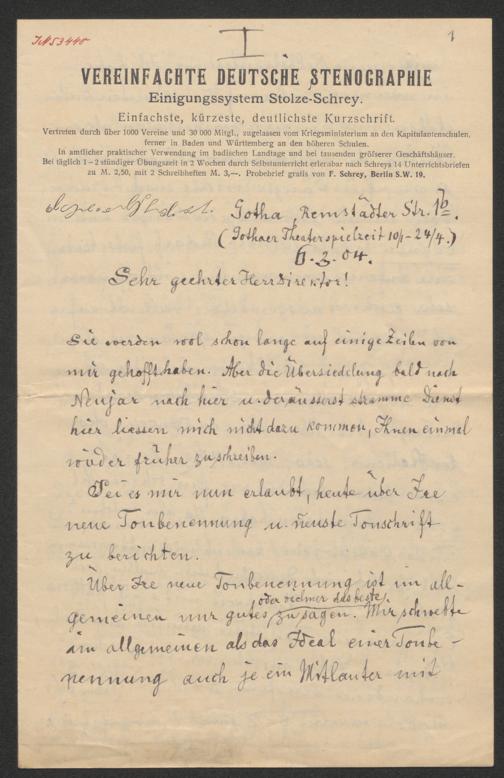 I
1
I.N. 53440
VEREINFACHTE DEUTSCHE STENOGRAPHIE
Einigungssystem Stolze-Schrey.
Einfachste, kürzeste, deutlichste Kurzschrift.
Vertreten durch über 1000 Vereine und 30 000 Mitgl., zugelassen vom Kriegsministerium an den Kapitulantenschulen,
ferner in Baden und Württemberg an den höheren Schulen.
In amtlicher praktischer Verwendung im badischen Landtage und bei tausenden größerer Geschäftshäuser.
Bei täglich 1–2 stündiger Übungszeit in 2 Wochen durch Selbstunterricht erlernbar nach Schreys 14 Unterrichtsbriefen
zu M. 2,50, mit 2 Schreibheften M. 3,—. Probebrief gratis von F. Schrey, Berlin S.W. 19.
Gotha, Remstädter Str. 1b.
(Gothaer Theaterspielzeit 10/1–24/4.)
6.3.04.
Sehr geehrter Herr Direktor!
Sie werden wol schon lange auf einige Zeilen von
mir gehofft haben. Aber die Übersiedelung bald nach
Neujar nach hier u. der äusserst stramme Dienst
hier liessen mich nicht dazu kommen, Ihnen einmal
wider früher zu schreiben.
Sei es mir nun erlaubt, heute über Ire
neue Tonbenennung u. neuste Tonschrift
zu berichten.
Über Ire neue Tonbenennung ist im all-
oder vielmer das beste
gemeinen nur gutes zu sagen. Mir schwebte
im allgemeinen als das Ideal einer Tonbe-
nennung auch je ein Mitlauter mit